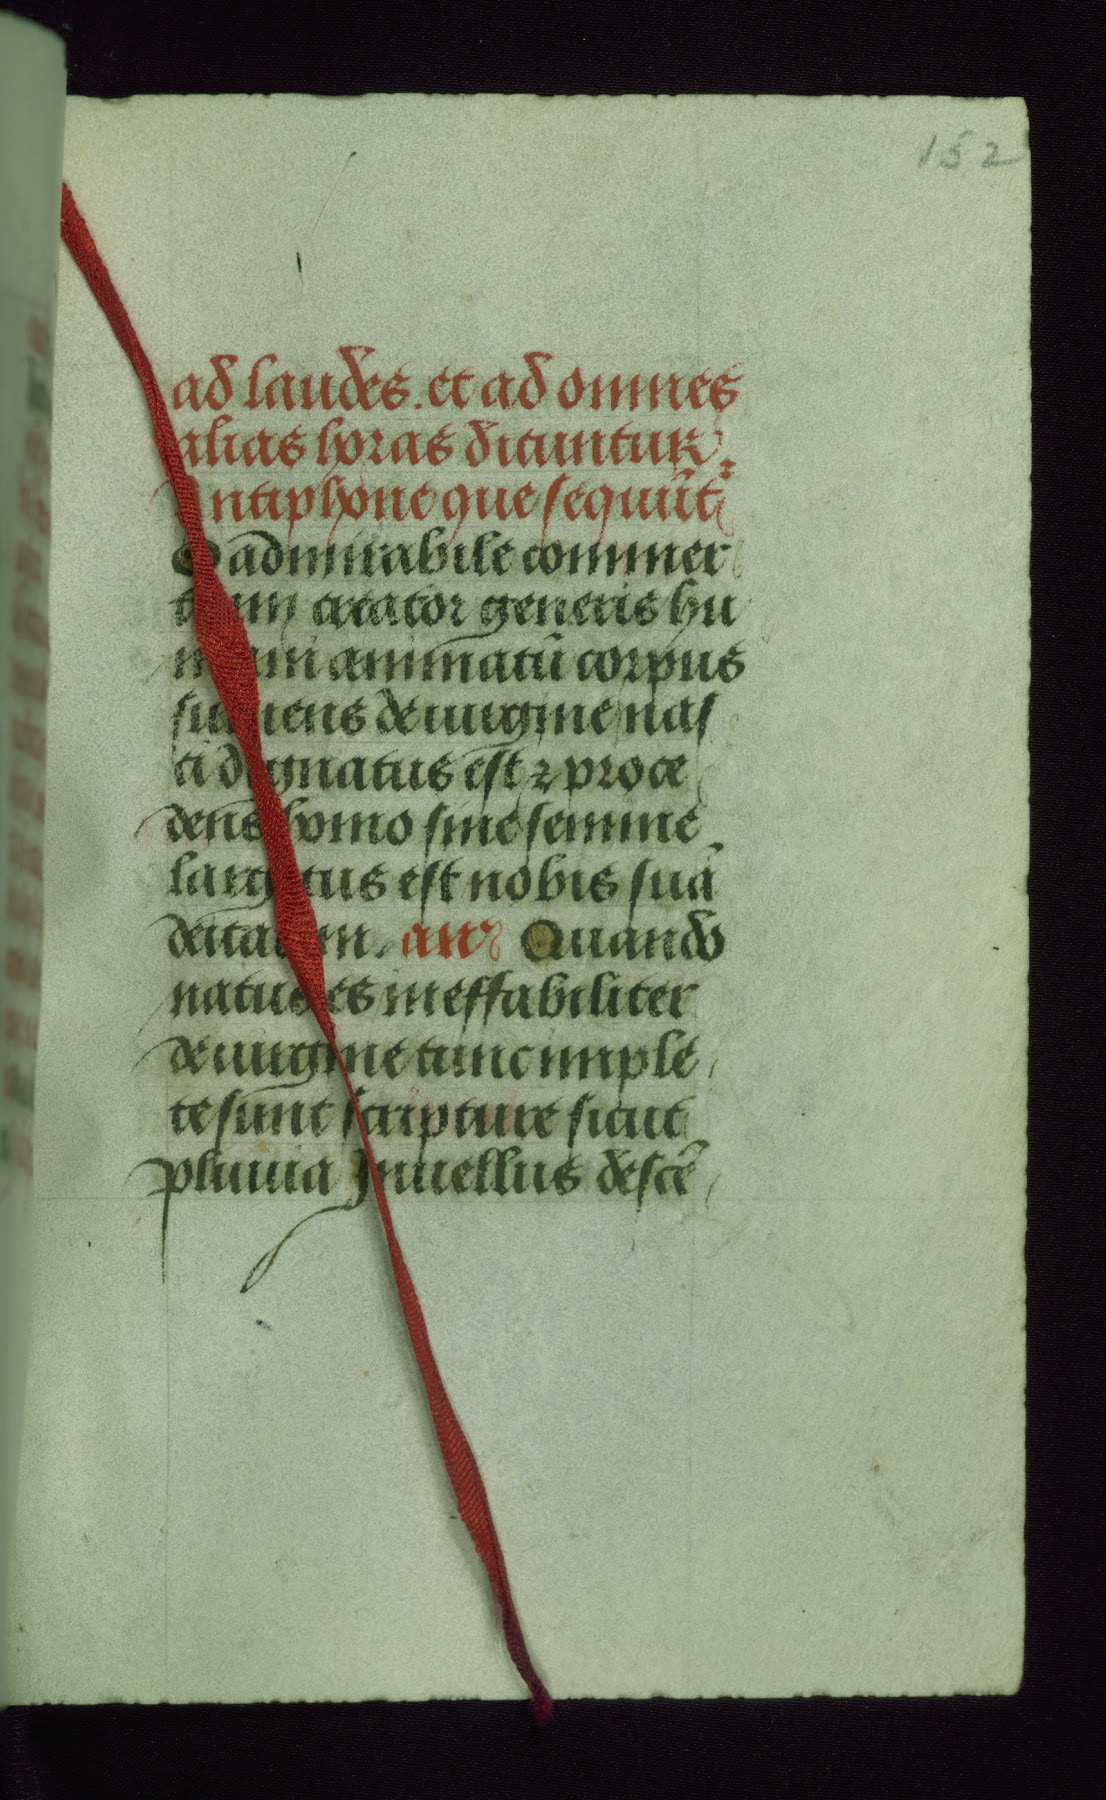 152
ad laudes. et ad omnes
alias horas dicuntur
Antiphone que sequūt
O admirabile commer
tium creator generis hu
mani animatū corpus
sumens de uirgine nas
ci dignatus est ⁊ proce
dens homo sine semine
largitus est nobis suā
deitatem. an̄ Quando
natus es ineffabiliter
de uirgine tunc imple
te sunt scripture sicut
pluuia In uellus descē